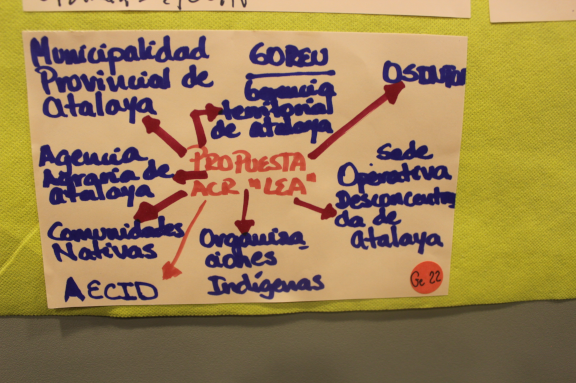 Municipalidad
Provincial de
Atalaya
GOREU
Gerencia
territorial
de atalaya
Agencia
Agraria de
atalaya
PROPUESTA
ACR "LEA"
Sede
Operativa
Desconcentra
da de
Atalaya
Comunidades
Nativas
Organiza
ciones
Indígenas
AECID
Ge 22